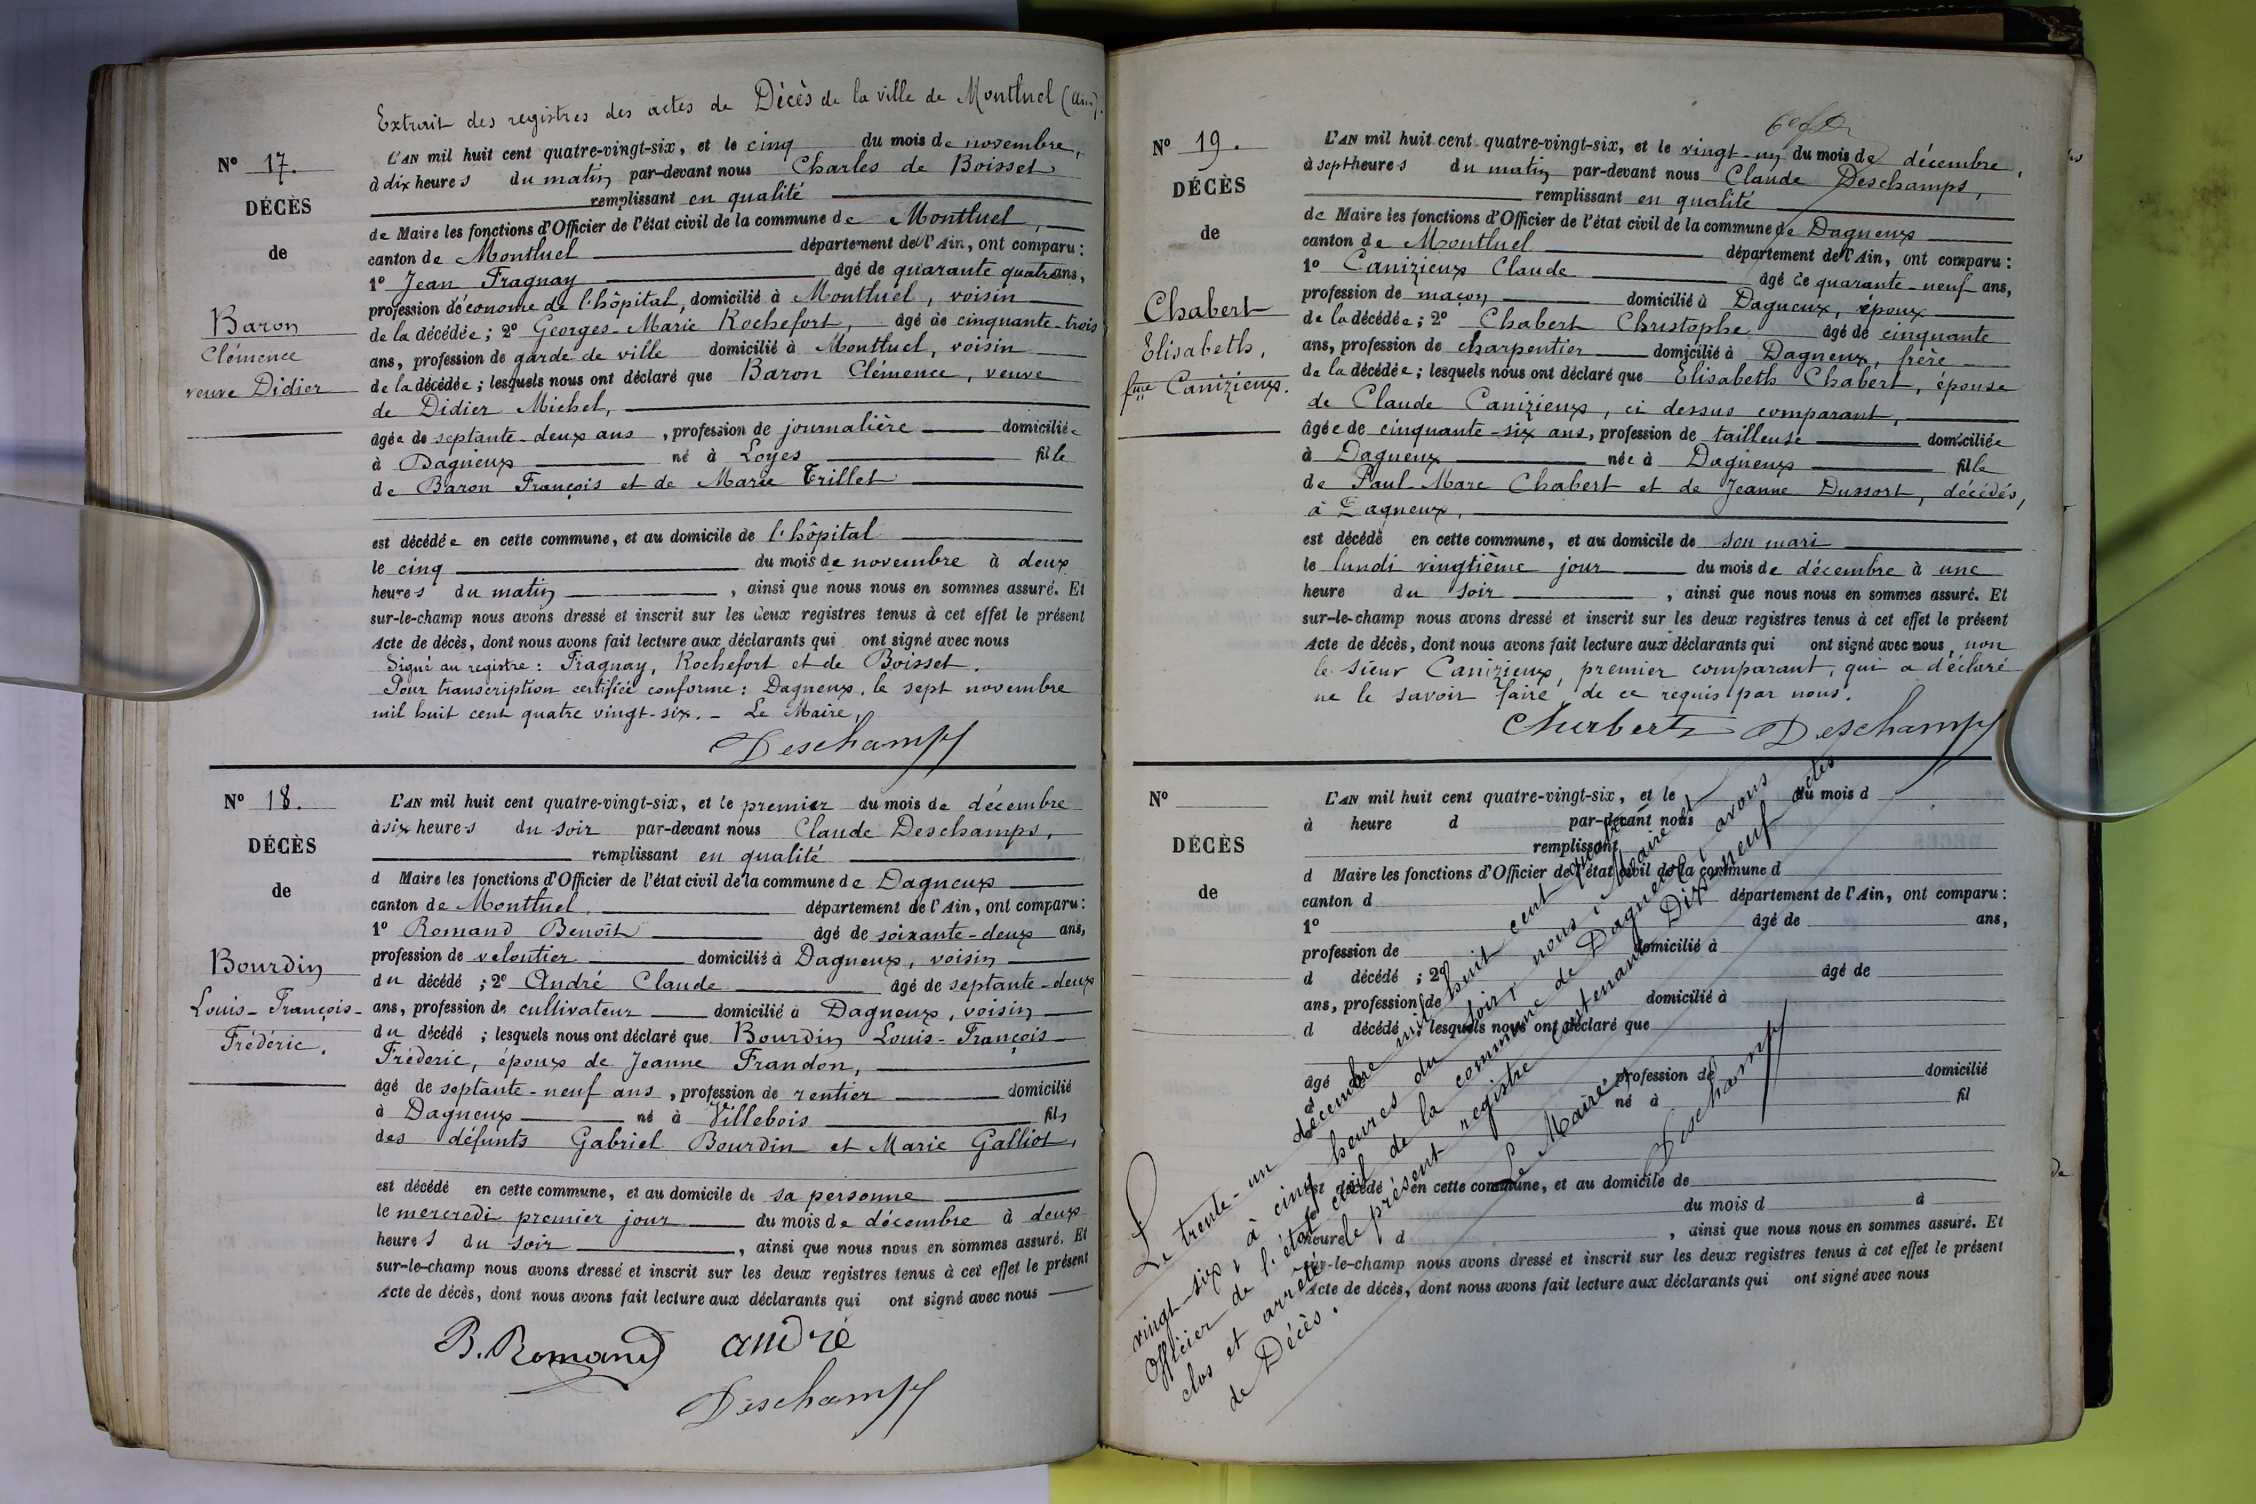 Extrait des registres des actes de Décès de la ville de Montluel (Ain).
N° 17.
DÉCÈS
de
Baron
Clémence
veuve Didier
L'AN mil huit cent quatre-vingt-six, et le cinq du mois de novembre,
à dix heures du matin par-devant nous Charles de Boisset
remplissant en qualité
de Maire les fonctions d'Officier de l'état civil de la commune de Montluel,
canton de Montluel département de l'Ain, ont comparu :
1° Jean Fragnay âgé de quarante quatre ans,
profession d'économe de l'hôpital, domicilié à Montluel, voisin
de la décédée ; 2° Georges-Marie Rochefort, âgé de cinquante-trois
ans, profession de garde de ville domicilié à Montluel, voisin
de la décédée ; lesquels nous ont déclaré que Baron Clémence, veuve
de Didier Michel,
âgée de septante-deux ans, profession de journalière domiciliée
à Dagneux né à Loyes fille
de Baron François et de Marie Trillet
est décédée en cette commune, et au domicile de l'hôpital
le cinq du mois de novembre à deux
heures du matin, ainsi que nous nous en sommes assuré. Et
sur-le-champ nous avons dressé et inscrit sur les deux registres tenus à cet effet le présent
Acte de décès, dont nous avons fait lecture aux déclarants qui ont signé avec nous
Signé au registre : Fragnay, Rochefort et de Boisset.
Pour transcription certifiée conforme : Dagneux, le sept novembre
mil huit cent quatre vingt-six. - Le Maire,
Deschamps
N° 18.
DÉCÈS
de
Bourdin
Louis-François-
Frédéric.
L'AN mil huit cent quatre-vingt-six, et le premier du mois de décembre
à six heures du soir par-devant nous Claude Deschamps,
remplissant en qualité
d Maire les fonctions d'Officier de l'état civil de la commune de Dagneux
canton de Montluel, département de l'Ain, ont comparu :
1° Romand Benoît âgé de soixante-deux ans,
profession de veloutier domicilié à Dagneux, voisin
du décédé ; 2° André Claude âgé de septante-deux
ans, profession de cultivateur domicilié à Dagneux, voisin
du décédé ; lesquels nous ont déclaré que Bourdin Louis-François-
Fréderic, époux de Jeanne Frandon,
âgé de septante-neuf ans, profession de rentier domicilié
à Dagneux né à Villebois fils
des défunts Gabriel Bourdin et Marie Galliot,
est décédé en cette commune, et au domicile de sa personne
le mercredi premier jour du mois de décembre à deux
heures du soir, ainsi que nous nous en sommes assuré. Et
sur-le-champ nous avons dressé et inscrit sur les deux registres tenus à cet effet le présent
Acte de décès, dont nous avons fait lecture aux déclarants qui ont signé avec nous
B. Romand andré
Deschamps
N° 19.
DÉCÈS
de
Chabert
Elisabeth,
fme Canizieux.
L'AN mil huit cent quatre-vingt-six, et le vingt-un du mois de décembre,
à sept heures du matin par-devant nous Claude Deschamps,
remplissant en qualité
de Maire les fonctions d'Officier de l'état civil de la commune de Dagneux
canton de Montluel département de l'Ain, ont comparu :
1° Canizieux Claude âgé de quarante-neuf ans,
profession de maçon domicilié à Dagneux, époux
de la décédée ; 2° Chabert Christophe âgé de cinquante
ans, profession de charpentier domicilié à Dagneux, frère
de la décédée ; lesquels nous ont déclaré que Elisabeth Chabert, épouse
de Claude Canizieux, ci dessus comparant,
âgée de cinquante-six ans, profession de tailleuse domiciliée
à Dagneux née à Dagneux fille
de Paul-Marc Chabert et de Jeanne Dussort, décédés,
à Dagneux,
est décédé en cette commune, et au domicile de son mari
le lundi vingtième jour du mois de décembre à une
heure du soir, ainsi que nous nous en sommes assuré. Et
sur-le-champ nous avons dressé et inscrit sur les deux registres tenus à cet effet le présent
Acte de décès, dont nous avons fait lecture aux déclarants qui ont signé avec nous, non
le sieur Canizieux, premier comparant, qui a déclaré
ne le savoir faire de ce requis par nous.
Churbert Deschamps
N°
DÉCÈS
de
L'AN mil huit cent quatre-vingt-six, et le du mois d
à heure d par-devant nous
remplissant
d Maire les fonctions d'Officier de l'état civil de la commune d
canton d département de l'Ain, ont comparu :
1° âgé de ans,
profession de domicilié à
d décédé ; 2° âgé de
ans, profession de domicilié à
d décédé ; lesquels nous ont déclaré que
âgé de profession de domicilié
à né à fil
est décédé en cette commune, et au domicile de
le du mois d à
heure d, ainsi que nous nous en sommes assuré. Et
sur-le-champ nous avons dressé et inscrit sur les deux registres tenus à cet effet le présent
Acte de décès, dont nous avons fait lecture aux déclarants qui ont signé avec nous
Le trente-un décembre mil huit cent quatre
vingt-six, à cinq heures du soir, nous, Maire et
Officier de l'état civil de la commune de Dagneux, avons
clos et arrêté le présent registre contenant Dix-neuf actes
de Décès.
Le Maire,
Deschamps